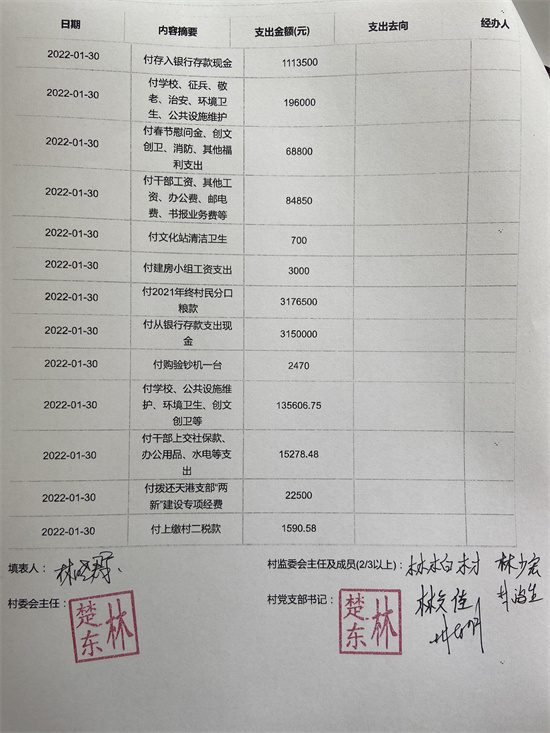 日期 内容摘要 支出金额(元) 支出去向 经办人
2022-01-30 付存入银行存款现金 1113500
2022-01-30 付学校、征兵、敬
老、治安、环境卫
生、公共设施维护 196000
2022-01-30 付春节慰问金、创文
创卫、消防、其他福
利支出 68800
2022-01-30 付干部工资、其他工
资、办公费、邮电
费、书报业务费等 84850
2022-01-30 付文化站清洁卫生 700
2022-01-30 付建房小组工资支出 3000
2022-01-30 付2021年终村民分口
粮款 3176500
2022-01-30 付从银行存款支出现
金 3150000
2022-01-30 付购验钞机一台 2470
2022-01-30 付学校、公共设施维
护、环境卫生、创文
创卫等 135606.75
2022-01-30 付干部上交社保款、
办公用品、水电等支
出 15278.48
2022-01-30 付拨还天港支部“两
新”建设专项经费 22500
2022-01-30 付上缴村二税款 1590.58
填表人： 村监委会主任及成员(2/3以上)： 林柏材 林少宏
村委会主任： 林楚东 村党支部书记： 林楚东 林文佳